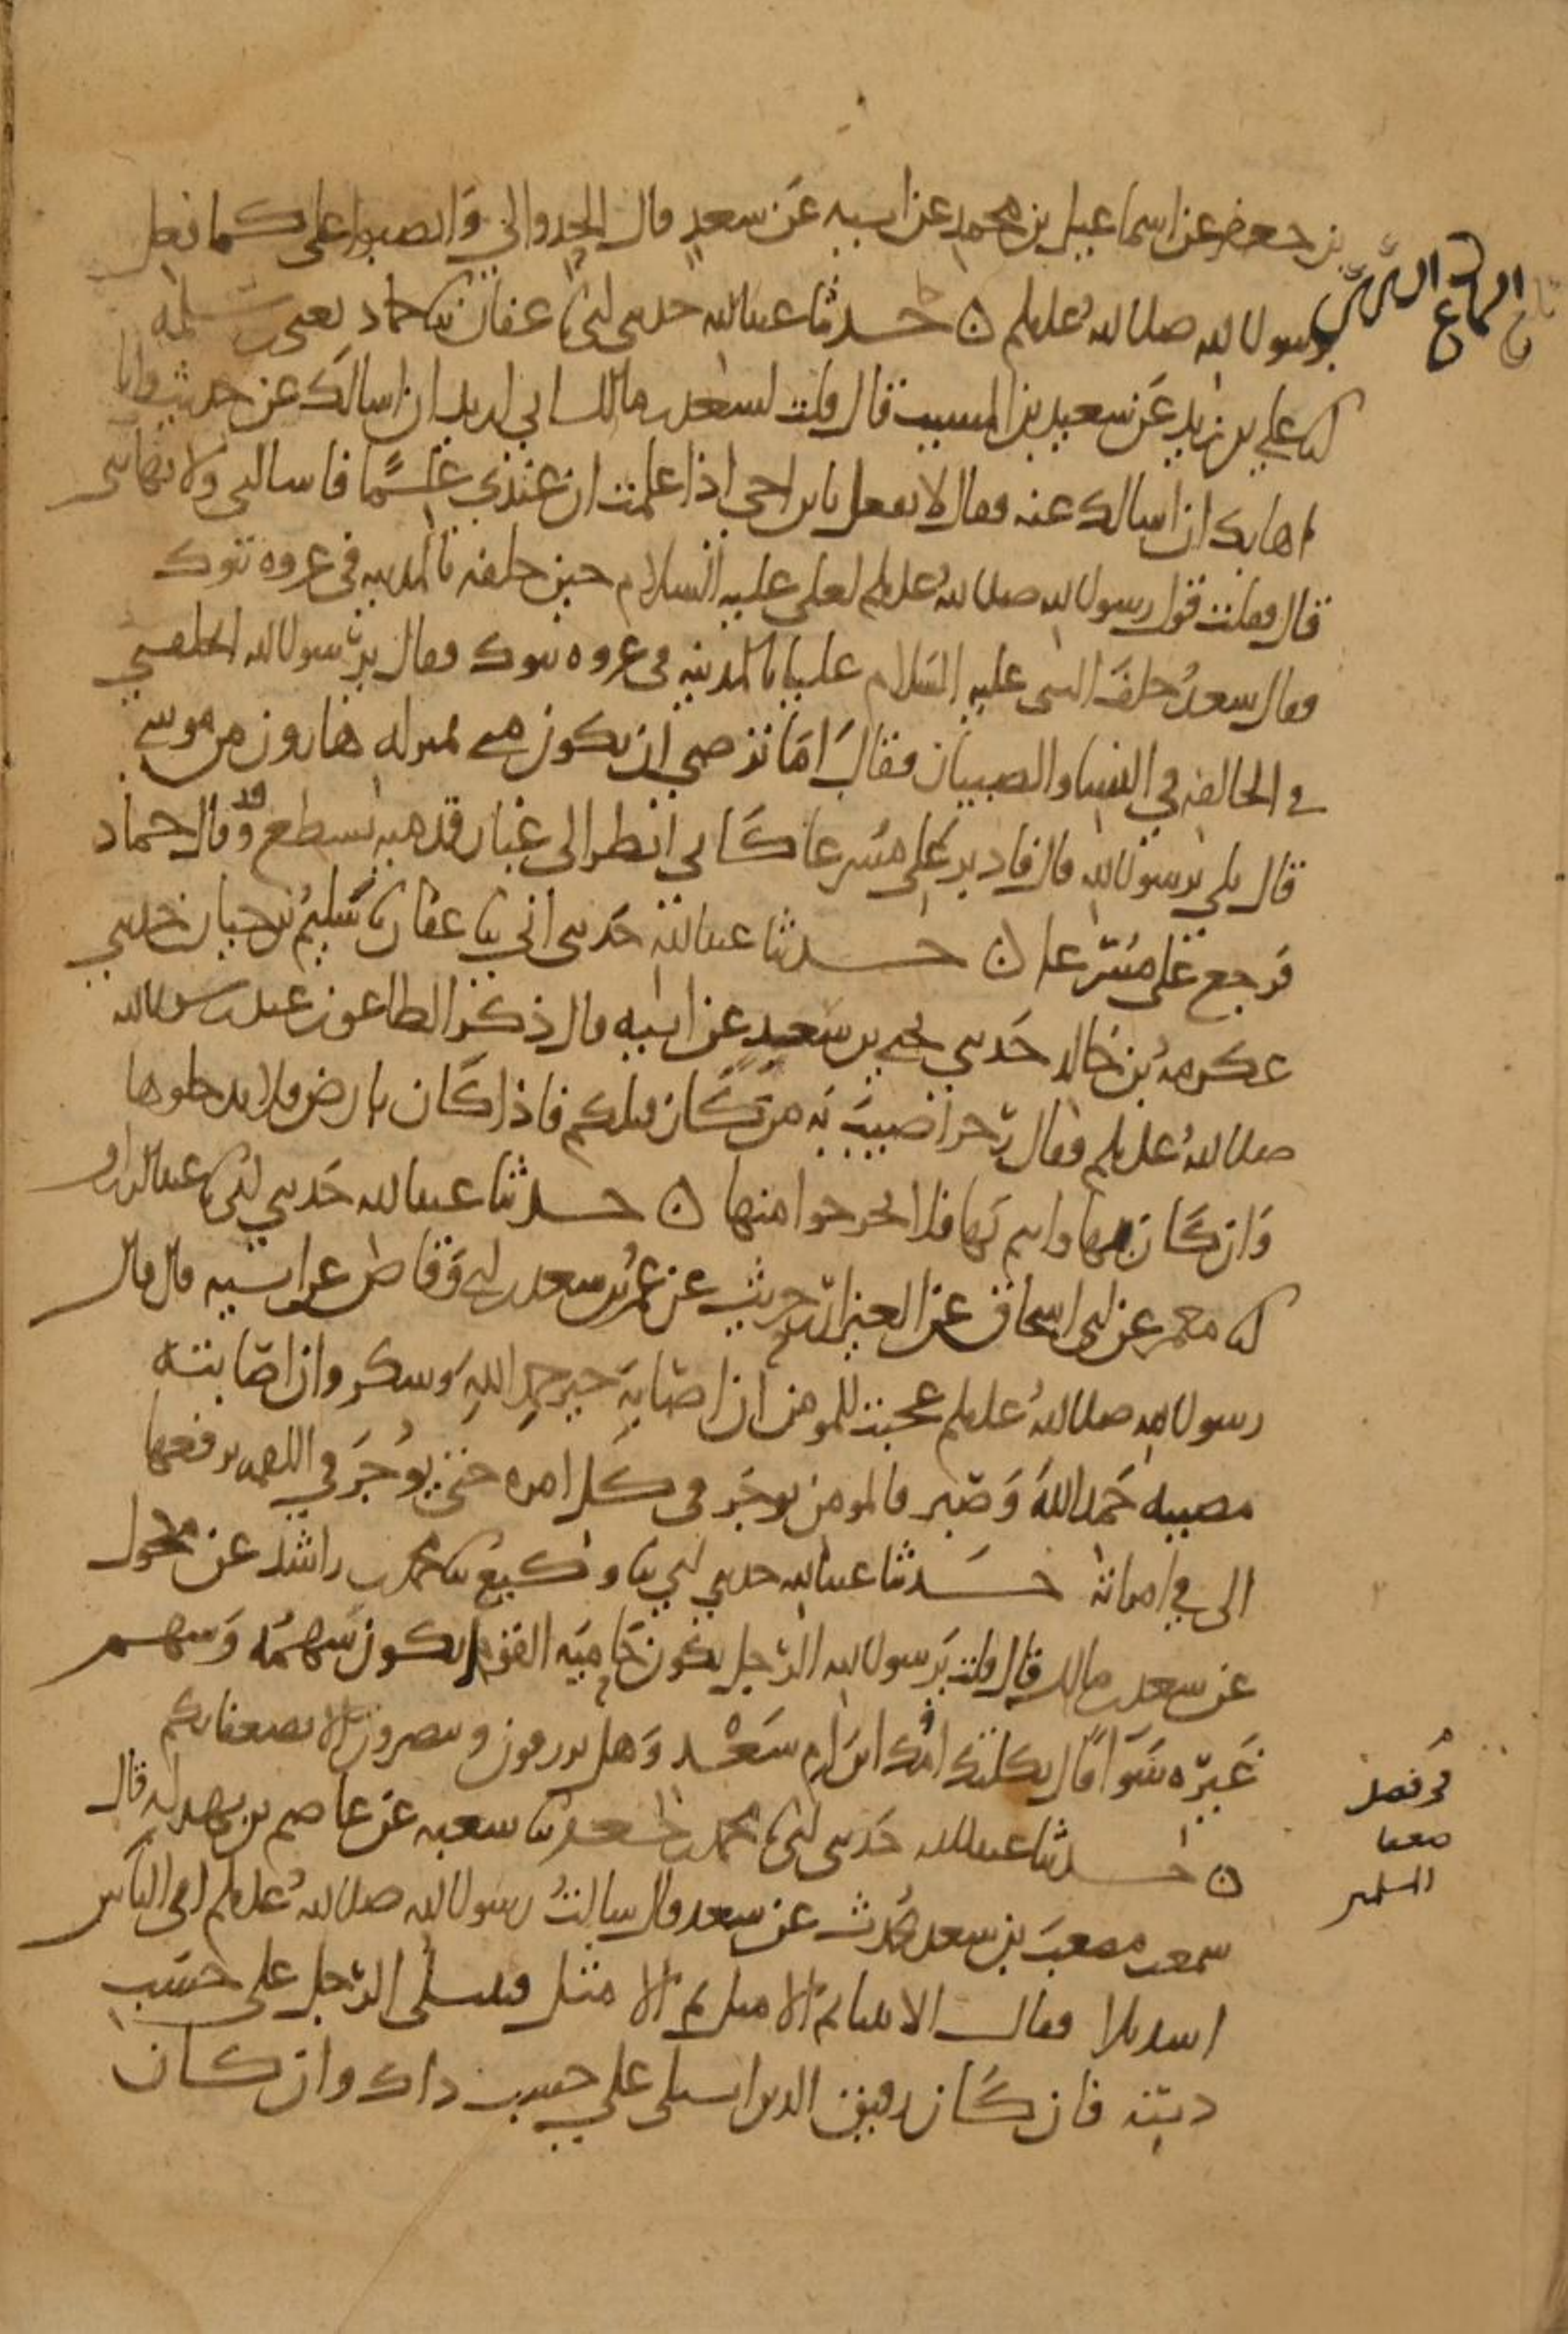 بن جعفر عن اسماعيل بن محمد عن ابيه عن سعد قال الحدوا لي وانصبوا على كما فعل
برسول الله صلى الله عليه وسلم ن حدثنا عبد الله حدثني ابي نا عفان ثنا حماد يعني بن سلمه
انا علي بن زيد عن سعيد بن المسيب قال قلت لسعد بن مالك اني اريد ان اسالك عن حديث وانا
اهابك ان اسالك عنه فقال لا تفعل يابن اخي اذا علمت ان عندي علما فاسالني ولا تهابني
قال فقلت قول رسول الله صلى الله عليه وسلم لعلي عليه السلام حين خلفه بالمدينه في غزوه تبوك
فقال سعد خلف النبي عليه السلام عليا بالمدينه في غزوه تبوك فقال يرسول الله اتخلفني
في الخالفه في النساء والصبيان فقال اما ترضى ان تكون مني بمنزله هارون من موسى
قال بلى يرسول الله قال فادبر علي مسرعا كاني انظر الى غبار قدميه يسطع وقد قال حماد
فرجع علي مسرعا ن حدثنا عبد الله حدثني ابي ثنا عفان نا سليم بن حيان حدثني
عكرمه بن خالد حدثني يحيى بن سعد عن ابيه قال ذكر الطاعون عند رسول الله
صلى الله عليه وسلم فقال رجز اصيب به من كان قبلكم فاذا كان بارض فلا تدخلوها
وان كان بها وانتم بها فلا تخرجوا منها ن حدثنا عبد الله حدثني ابي نا عبد الرزاق
انا معمر عن ابي اسحاق عن العيزار بن حريث عن عمر بن سعد بن ابي وقاص عن ابيه قال قال
رسول الله صلى الله عليه وسلم عجبت للمومن ان اصابه خير حمد الله وشكر وان اصابته
مصيبه حمد الله وصبر فالمومن يوجر في كل امره حتى يوجر في اللقمه يرفعها
الى في امراته حدثنا عبد الله حدثني ابي ثنا وكيع ثنا محمد بن راشد عن مكحول
عن سعد بن مالك قال قلت يرسول الله الرجل يكون حاميه القوم ايكون سهمه وسهم
غيره سوا قال ثكلتك امك ابن ام سعد وهل ترزقون وتنصرون الا بضعفائكم
ن حدثنا عبد الله حدثني ابي نا محمد بن جعفر ثنا شعبه عن عاصم بن بهدله قال
سمعت مصعب بن سعد يحدث عن سعد قال سالت رسول الله صلى الله عليه وسلم اي الناس
اشد بلا فقال الانبيا ثم الامثل ثم الامثل فيبتلى الرجل على حسب
دينه فان كان رقيق الدين ابتلي على حسب ذاك وان كان